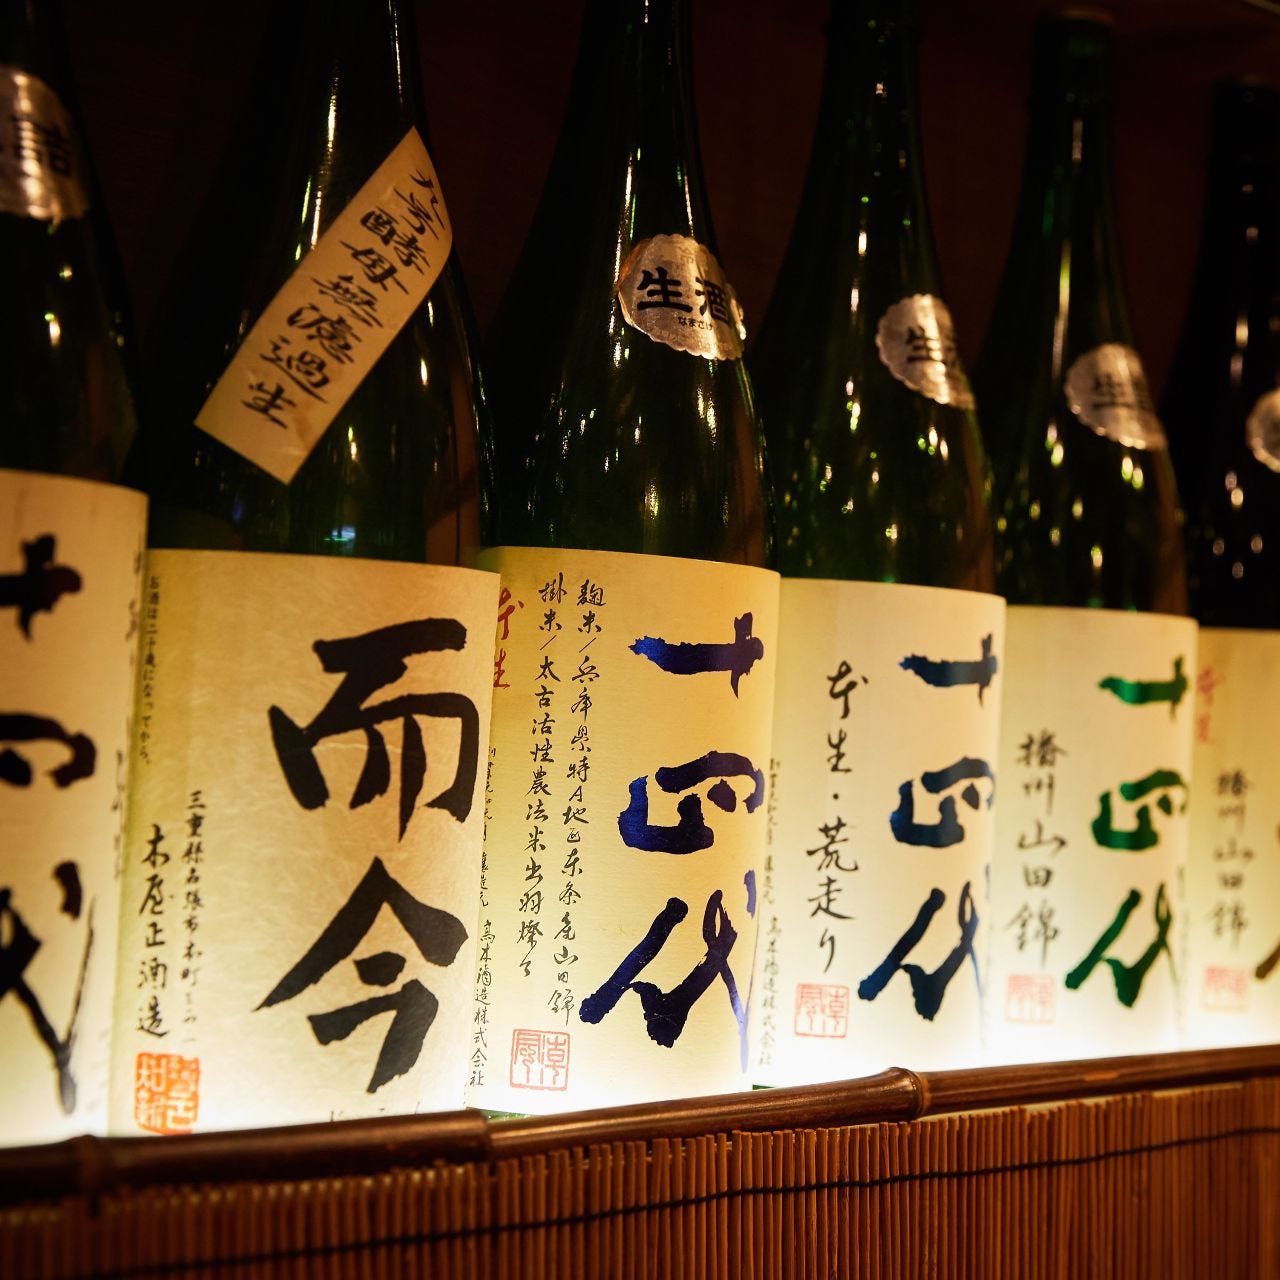 詰
十四代
九号酵母無濾過生
お酒は二十歳になってから。
而今
三重県名張市本町
木屋正酒造
生酒
なまざけ
本生
麹米/兵庫県特A地区東条産山田錦
掛米/太古活性農法米出羽燦々
十四代
高木酒造株式会社
生
十四代
本生・荒走り
高木酒造株式会社
生
十四代
播州山田錦
本生
播州山田錦